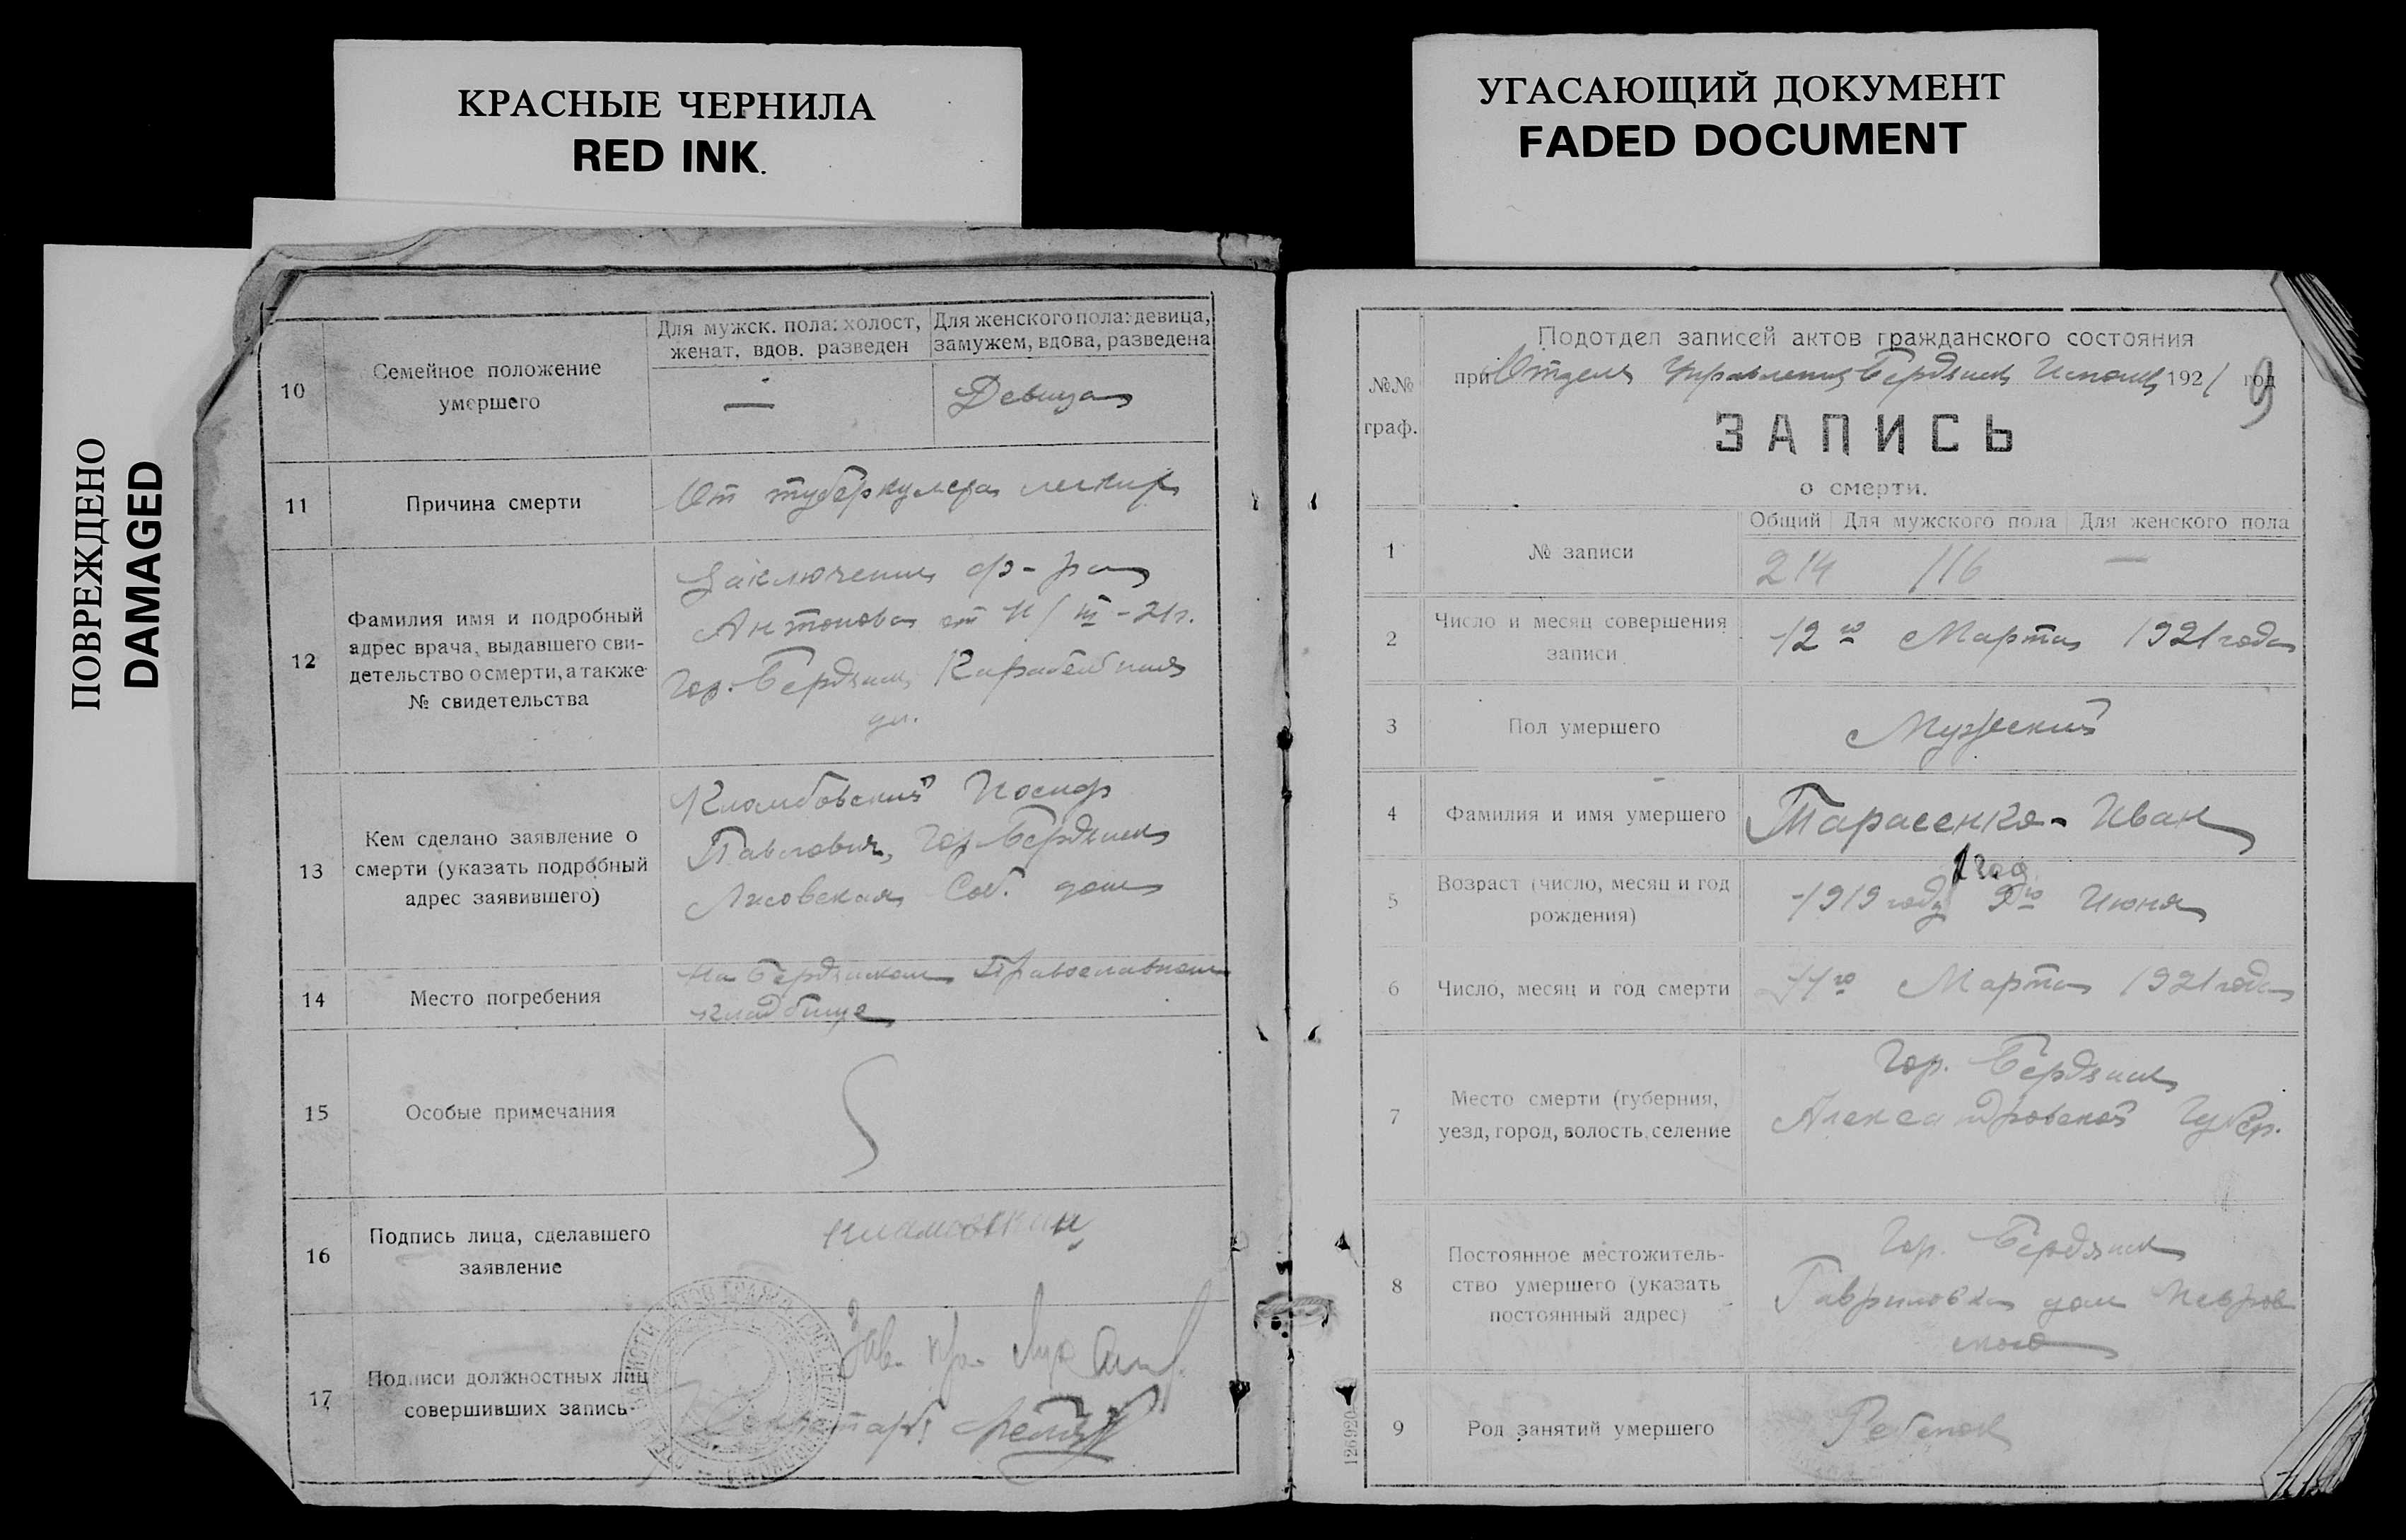 КРАСНЫЕ ЧЕРНИЛА
RED INK.
УГАСАЮЩИЙ ДОКУМЕНТ
FADED DOCUMENT
ПОВРЕЖДЕНО
DAMAGED
10
Семейное положение
умершего
Для мужск. пола: холост,
женат, вдов. разведен
Для женского пола: девица,
замужем, вдова, разведена
—
Девица
11
Причина смерти
От туберкулеза легких
12
Фамилия имя и подробный
адрес врача, выдавшего сви-
детельство о смерти, а также
№ свидетельства
Заключение д-ра
Антонова от 11/III-21г.
Гор. Бердянск
ул.
13
Кем сделано заявление о
смерти (указать подробный
адрес заявившего)
Иосиф
Павлович, Гор Бердянск
Лисовская Соб. дом
14
Место погребения
На Бердянском Православном
кладбище
15
Особые примечания
16
Подпись лица, сделавшего
заявление
17
Подписи должностных лиц
совершивших запись
Секретарь
№№
граф.
Подотдел записей актов гражданского состояния
при Отделе Управления Бердянск Исполк 1921 год
9
ЗАПИСЬ
о смерти.
1
№ записи
Общий
Для мужского пола
Для женского пола
214
116
—
2
Число и месяц совершения
записи
12го Марта 1921 года
3
Пол умершего
Мужеский
4
Фамилия и имя умершего
Тарасенко- Иван
5
Возраст (число, месяц и год
рождения)
1 год
1919 году 9го Июня
6
Число, месяц и год смерти
11го Марта 1921 года
7
Место смерти (губерния,
уезд, город, волость, селение
Гор. Бердянск
Александровской Губер.
8
Постоянное местожитель-
ство умершего (указать
постоянный адрес)
Гор. Бердянск
Гавриловка дом
9
Род занятий умершего
Ребенок
126920